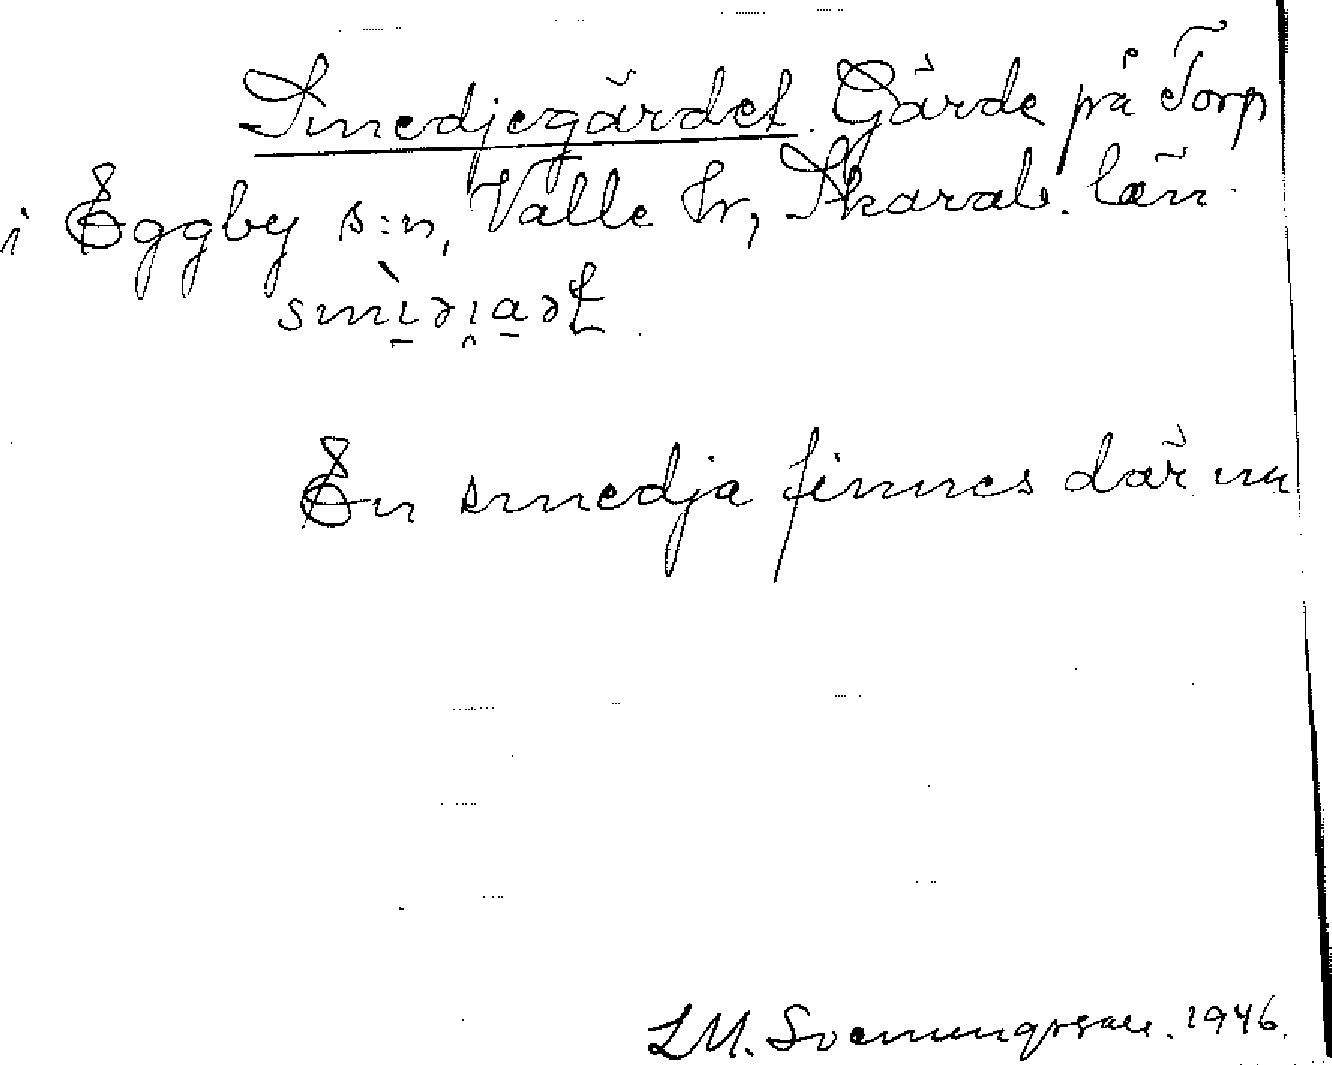 Smedjegärdet. Gärde på Torp
i Eggby s:n, Valle hr, Skarab. län.
En smedja finnes där nu
L M. Svenungsson. 1946.